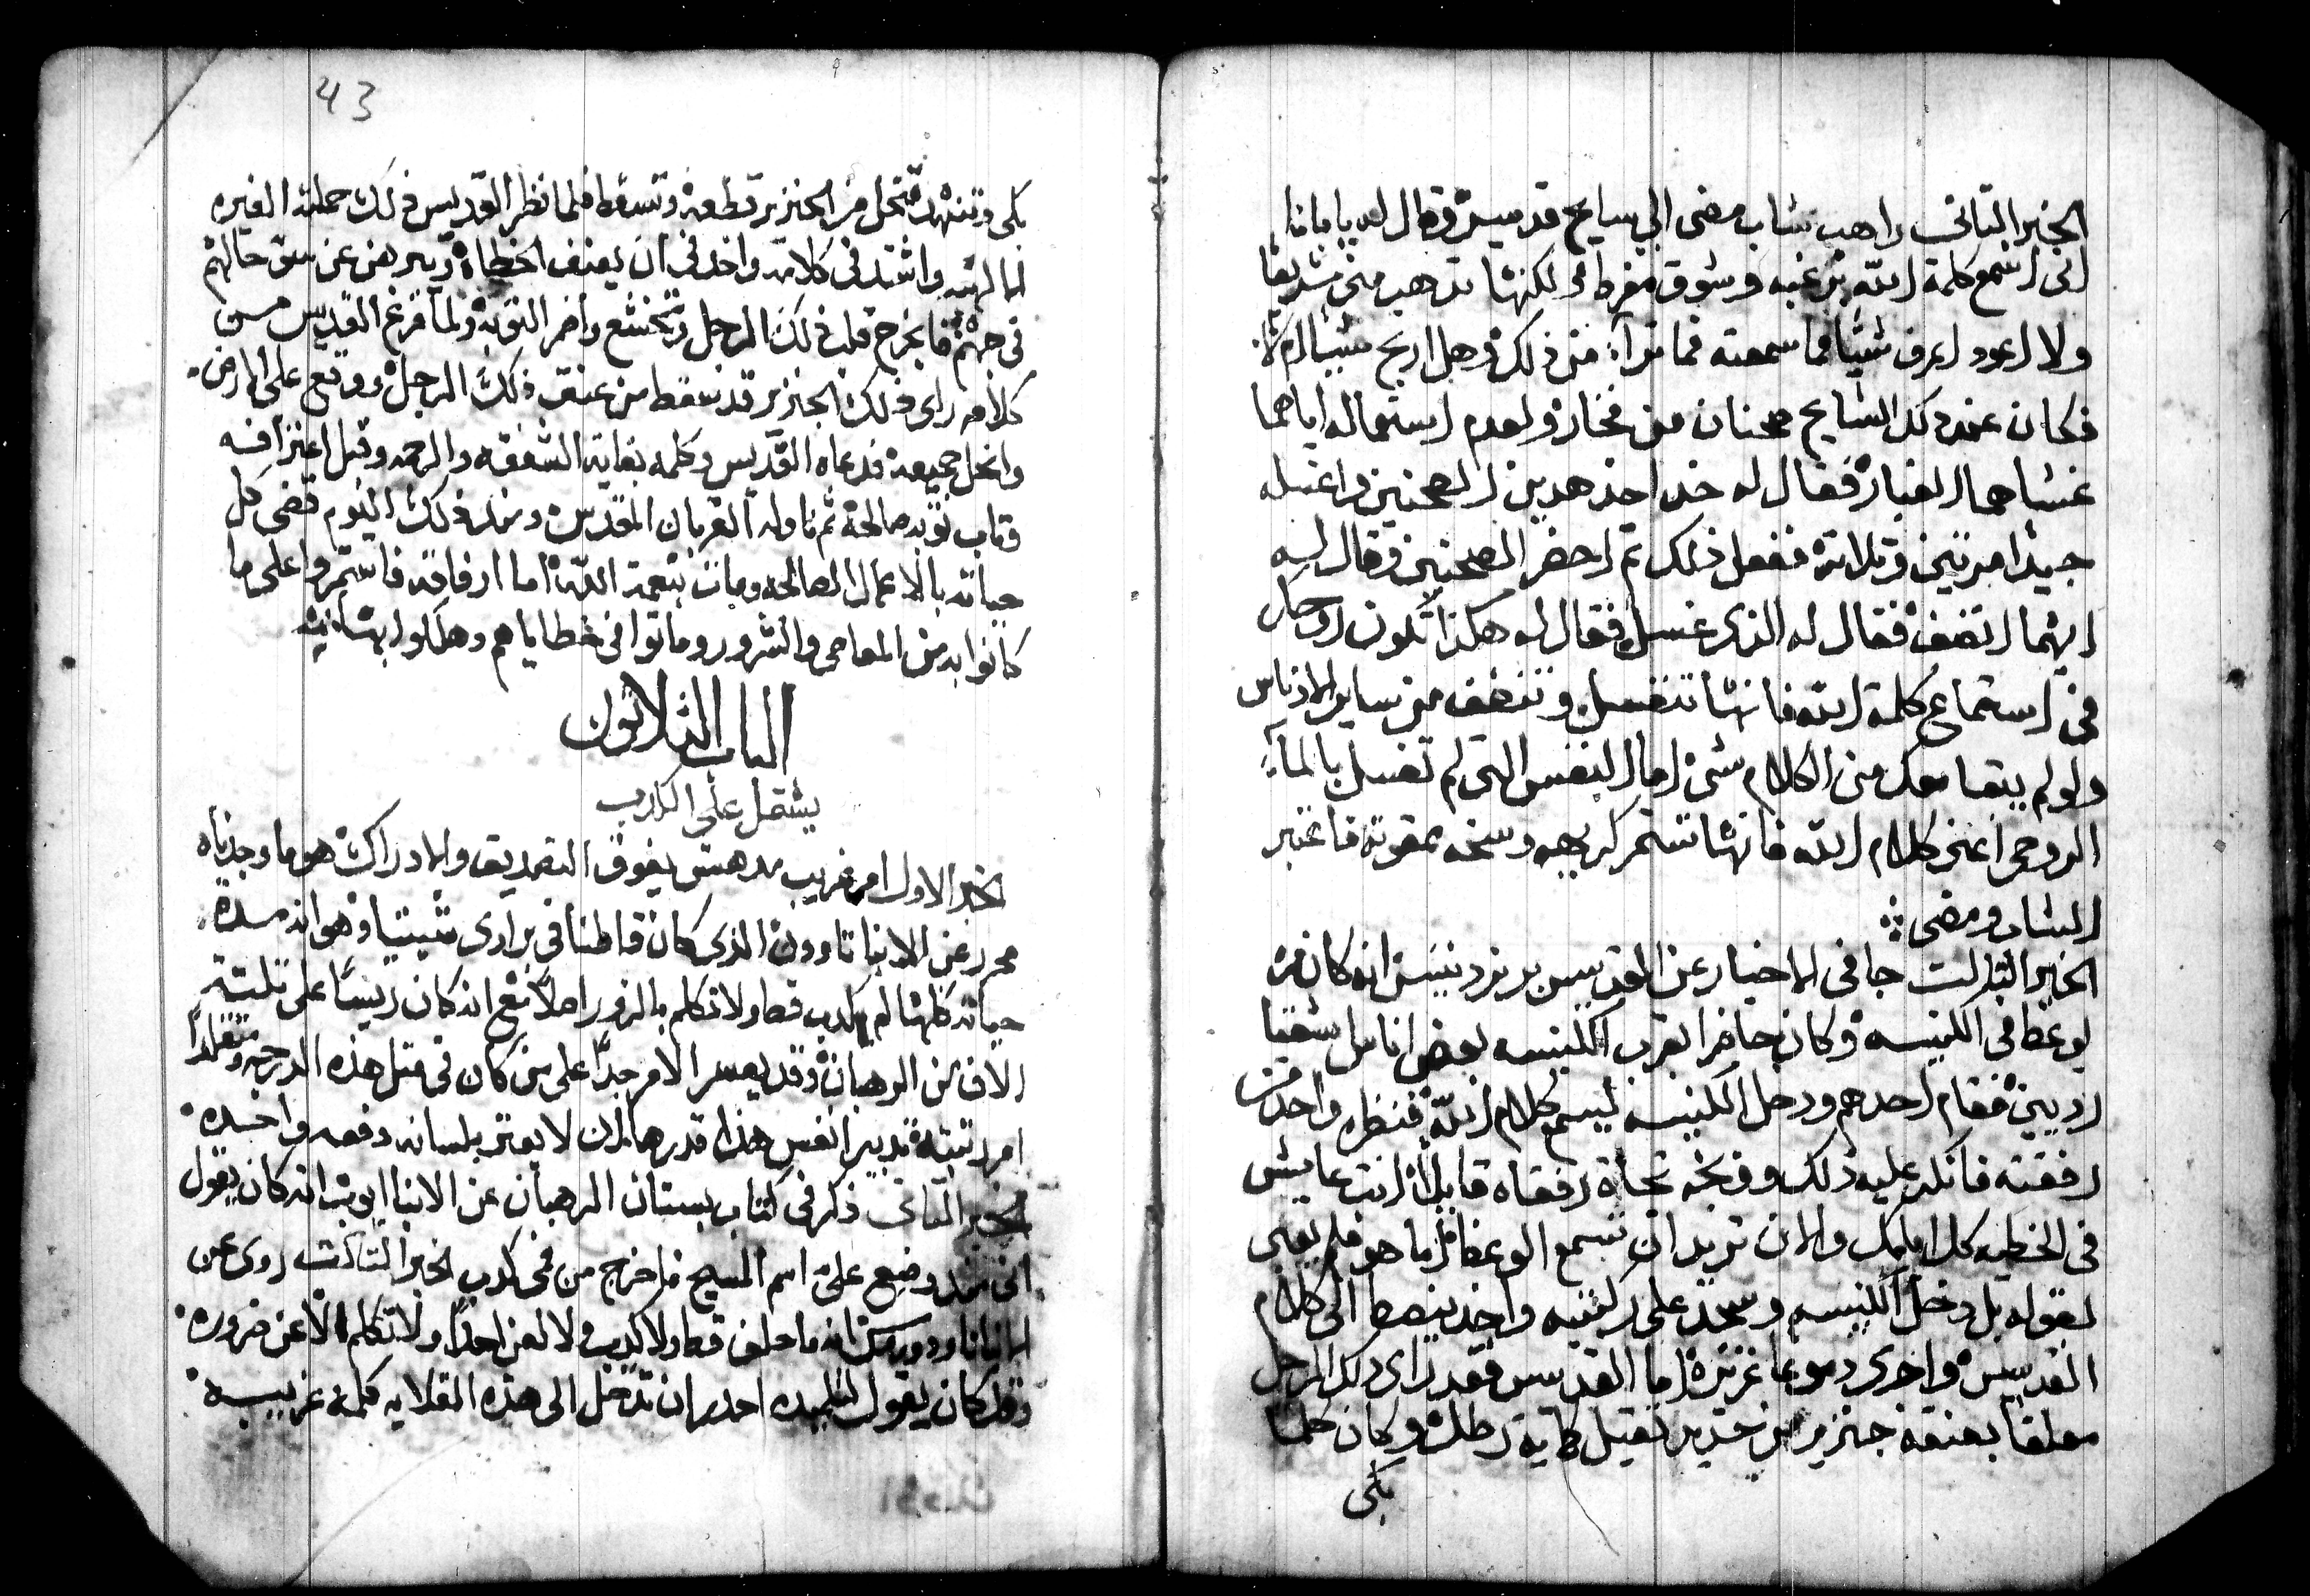 الخبر التاني راهب شاب مضى الي سايح قديس وقال له يا بانا
انى اسمع كلمة الله برغبه وشوق مفرط ولكنها تدهب منى سريعا
ولا اعود اعرف شيًا مما سمعته فما تراه من ذلك وهل اربح شيا ام لا
فكان عند دلك السايح صحنان من فخار ولعدم استعماله اياهما
غشاهما الغبار فقال له خد احد هدين الصحنين واغسله
جيدا مرتين وتلاتة ففعل ذلك تم احضر الصحنين وقال له
ايهما انضف فقال له الذى غسل فقال له هكذا تكون روحك
فى استماع كلمة الله فانها تنغسل وتنضف من ساير الادناس
ولو لم يبقا معك من الكلام شى اما النفس التى لم تغسل بالمآ
الروحى اعنى كلام الله فانها تستمر كريهه وسخه ممقوته فاعتبر
الشاب ومضى
الخبر التالت جا فى الاخبار عن القديس برنردينس انه كان مره
يوعظ فى الكنيسه وكان حاضرا بقرب الكنيسه بعض اناس اشقيا
رديين فقام احدهم ودخل الكنيسه ليسمع كلام الله فنظره واحد من
رفقته فانكر عليه ذلك ووبخه تجاه رفقاه قايلاً انت عايش
فى الخطيه كل ايامك والان تريد ان تسمع الوعظ اما هو فلم يعبى
لقوله بل دخل الكنيسه وسجد على ركبتيه واخد ينصط الى كلام
القديس واجرى دموعا غزيره اما القديس فقد راى دلك الرجل
معلقا بعنقه جنزير من حديد تقيل كماية رطل وكان كلما
بكى
43
بكى وتنهد تنحل من الجنزير قطعه وتسقط فلما نظر القديس ذلك حملته الغيره
الالهيه واشتد فى كلامه واخد فى ان يعنف الخطاة ويبرهن عن سو حالهم
فى جهنم فانجرح قلب ذلك الرجل وتخشع واضمر التوبه ولما فرغ القديس من
كلامه راى ذلك الجنزير قد سقط من عنق ذلك الرجل ووقع على الارض
وانحل جميعه فدعاه القديس وكلمه بغاية الشفقه والرحمه وقبل اعترافه
وتاب توبه صالحة ثم ناوله القربان المقدس ومند ذلك اليوم قضى كل
حياته بالاعمال الصالحه ومات بنعمة الله اما ارفاقه فاستمروا على ما
كانوا به من المعاصى والشرور وماتوا فى خطاياهم وهلكوا
الباب الثلاثون
يشتمل على الكدب
الخبر الاول امر غريب مدهش يفوق التصديق والادراك هو ما وجدناه
محرر عن الانبا تاوون الذى كان قاطنا فى برارى شيتيا وهو انه مدة
حياته كلها لم يكدب قط ولا تكلم بالزور اصلاً مع انه كان ريسًا على تلتة
الاف من الرهبان وقد يعسر الامر جدًا على من كان فى متل هذه الدرجه ومتقلدًا
امر تدبير انفس هذا قدرها ان لا يعتر بلسانه دفعه واحده
الخبر التانى ذكر فى كتاب بستان الرهبان عن الانبا ايوب انه كان يقول
انى مند وضع علىّ اسم المسيح ما خرج من فمى كدب الخبر التالت روى عن
الانبا تاودورس انه ما حلف قط ولا كدب ولا لعن احدًا ولا تكلم الا عن ضروره
وقد كان يقول لتلميده احدر ان تدخل الى هذه القلايه كلمة غريبه